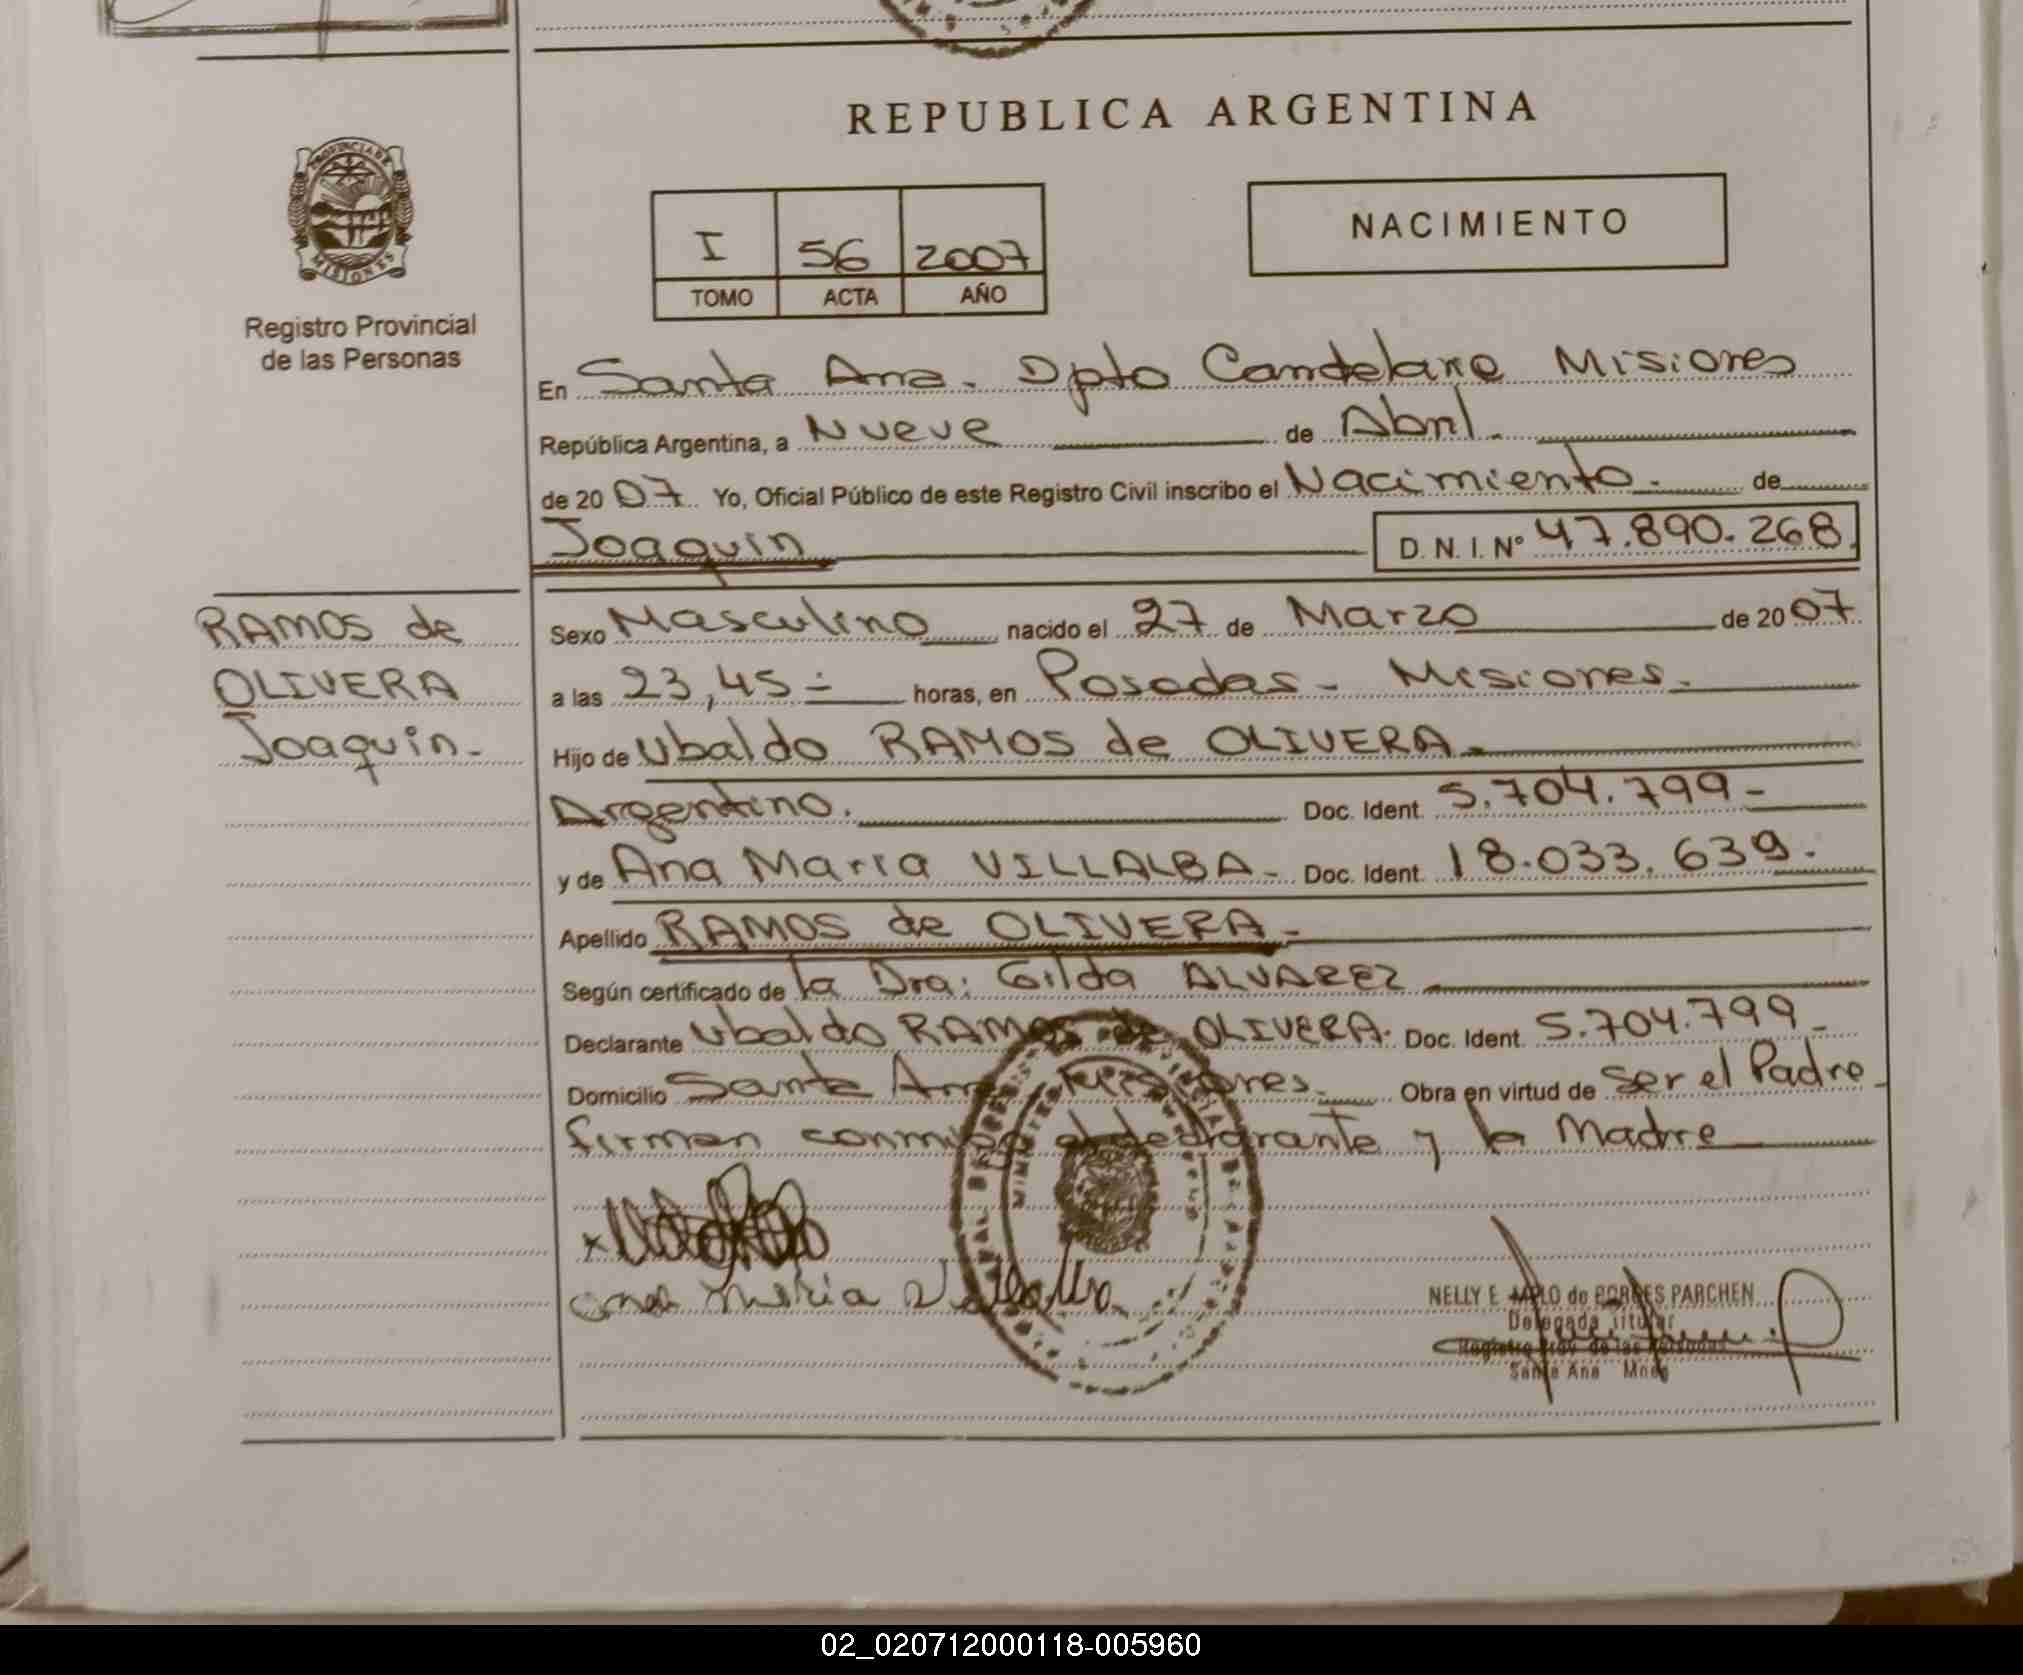 REPUBLICA ARGENTINA
PROVINCIA DE
MISIONES
Registro Provincial
de las Personas
I 56 2007
TOMO ACTA AÑO
NACIMIENTO
En Santa Ana. Dpto Candelaria Misiones
República Argentina, a Nueve de Abril.
de 2007. Yo, Oficial Público de este Registro Civil inscribo el Nacimiento. de
Joaquin D. N. I. Nº 47.890.268
RAMOS de
OLIVERA
Joaquin.
Sexo Masculino nacido el 27 de Marzo de 2007
a las 23,45 horas, en Posadas - Misiones.
Hijo de Ubaldo RAMOS de OLIVERA.
Argentino. Doc. Ident. 5.704.799-
y de Ana Maria VILLALBA - Doc. Ident. 18.033.639.
Apellido RAMOS de OLIVERA.
Según certificado de la Dra: Gilda ALVAREZ
Declarante Ubaldo RAMOS de OLIVERA. Doc. Ident. 5.704.799-
Domicilio Santa Ana Misiones. Obra en virtud de Ser el Padre
firman conmigo el declarante y la Madre
ana Maria Villalba
NELLY E. MELO de BORGES PARCHEN
Delegada Titular
Registro Prov. de las Personas
Santa Ana Mnes
02_020712000118-005960